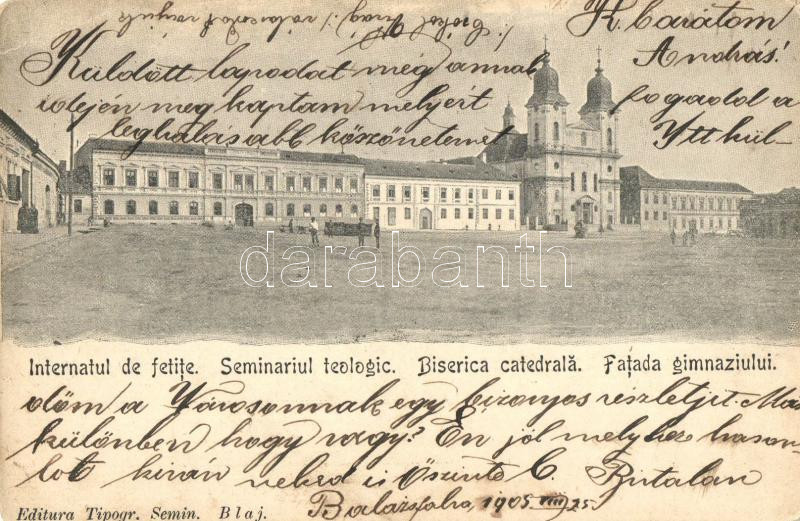 K. barátom
András!
Küldött lapodat még annak
idején megkaptam melyért
leghálásabb köszönetemet
fogadd a
Ytt kül-
darabanth.com
Internatul de fetițe. Seminariul teologic. Biserica catedrală. Fațada gimnaziului.
döm a Városonnak egy bizonyos részletjit. Más
különben hogy vagy? Én jól melyhez hason-
lót kíván neked is Őszinte b.
Balázsfalva, 1905 VIII/25
Editura Tipogr. Semin. Blaj.